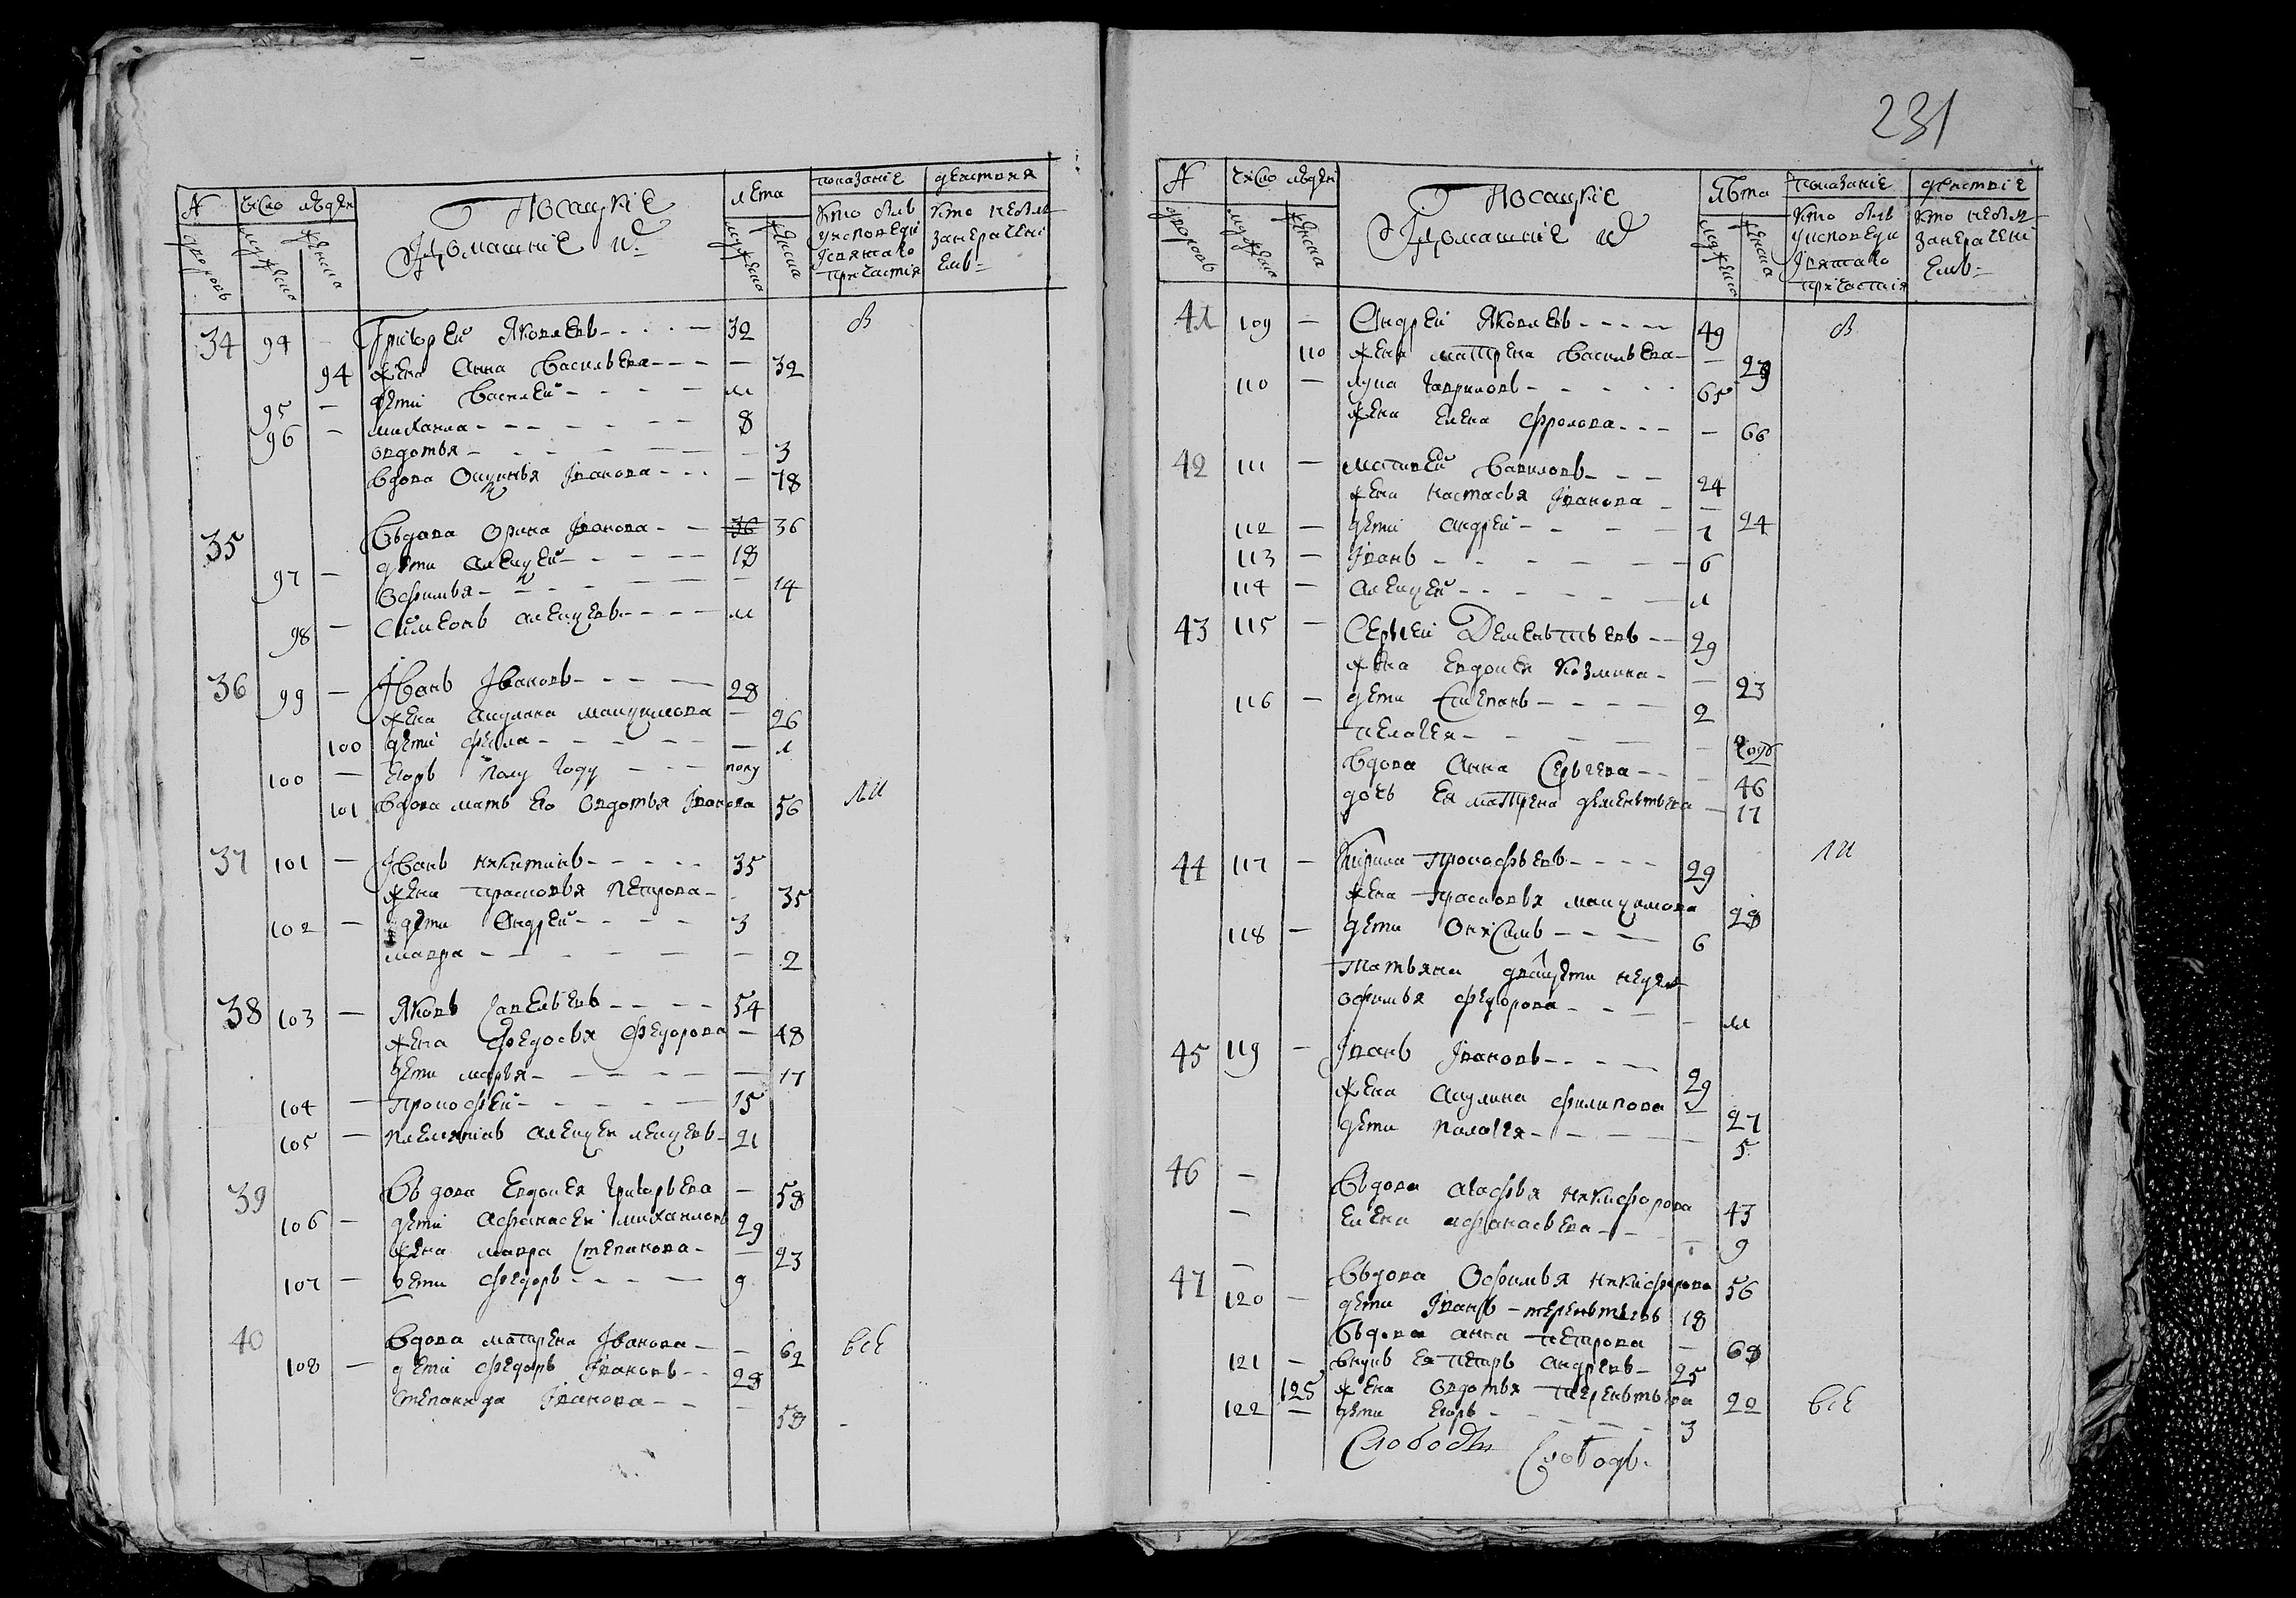 231
№ число людеи Посацкие лета показание действия
дворовъ мужеска женска И домашние ихъ мужеска женска кто былъ у исповеди и святаго причастия кто не былъ за нерачениемъ
34 94 — Григорей Яковлевъ — 32 В
94 жена Анна Васильева — 32
95 — дети Василей — 11
96 — михаила — 8
овдотья — 3
вдова Оксинья Иванова — 78
35 Вьдова орина Иванова — 36 36
97 — дети алексей — 18
офимья — 14
98 — Симеонъ алексеевъ — 11
36 99 — Иванъ Ивановъ — 28
жена акулина максимова — 26
100 дети фекла — 1
100 — егоръ полу году — полу
101 вдова мать его овдотья Иванова 56 ли
37 101 — Иванъ никитинъ — 35
жена прасковья петрова — 35
102 — дети Андрей — 3
мавра — 2
38 103 — Яковъ савельевъ — 54
жена федосья федорова — 48
дети марья — 17
104 — прокофей — 15
105 — племянникъ алексей алексеевъ 21
39 Вьдова Евдокея григорьева — 58
106 — дети афанасей михаиловъ 29
жена мавра степанова — 23
107 — дети федоръ — 9
40 вдова матрена Иванова — 62 все
108 — дети федоръ Ивановъ — 28
степанида Иванова — 58
№ число людеи Посацкие лѣта показание действие
дворовъ мужеска женска И домашние ихъ мужеска женска кто былъ у исповеди и святаго причастия кто не былъ за нерачениемъ
41 109 — Андрей Яковлевъ — 49 В
110 жена матрена васильева — 29
110 — лука гавриловъ — 65
жена елена фролова — 66
42 111 — матвей вавиловъ — 24
жена настасья Иванова — 24
112 — дети андрей — 7
113 — Иванъ — 6
114 — алексей — 1
43 115 — Сергей Дементьевъ — 29
жена евдокея козмина — 23
116 — дети степанъ — 2
пелагея — годъ
вдова Анна Сергеева — 46
дочь ея матрена дементьева — 17
44 117 — Кирила прокофьевъ — 29 ли
жена прасковья максимова 28
118 — дети Онисимъ — 6
татьяна двацети недель
офимья федорова — 11
45 119 — Иванъ Ивановъ — 29
жена акулина филипова — 27
дети палагея — 5
46 — Вьдова агафья никифорова 43
— елена афанасьева — 9
47 — Вьдова Офимья никифорова 56
120 — дети Иванъ терентьевъ 18
Вьдова анна петрова — 68
121 — внукъ ея петръ андреевъ — 25
125 жена овдотья терентьева 22 все
122 — дети егоръ — 3
Слободы Слободъ